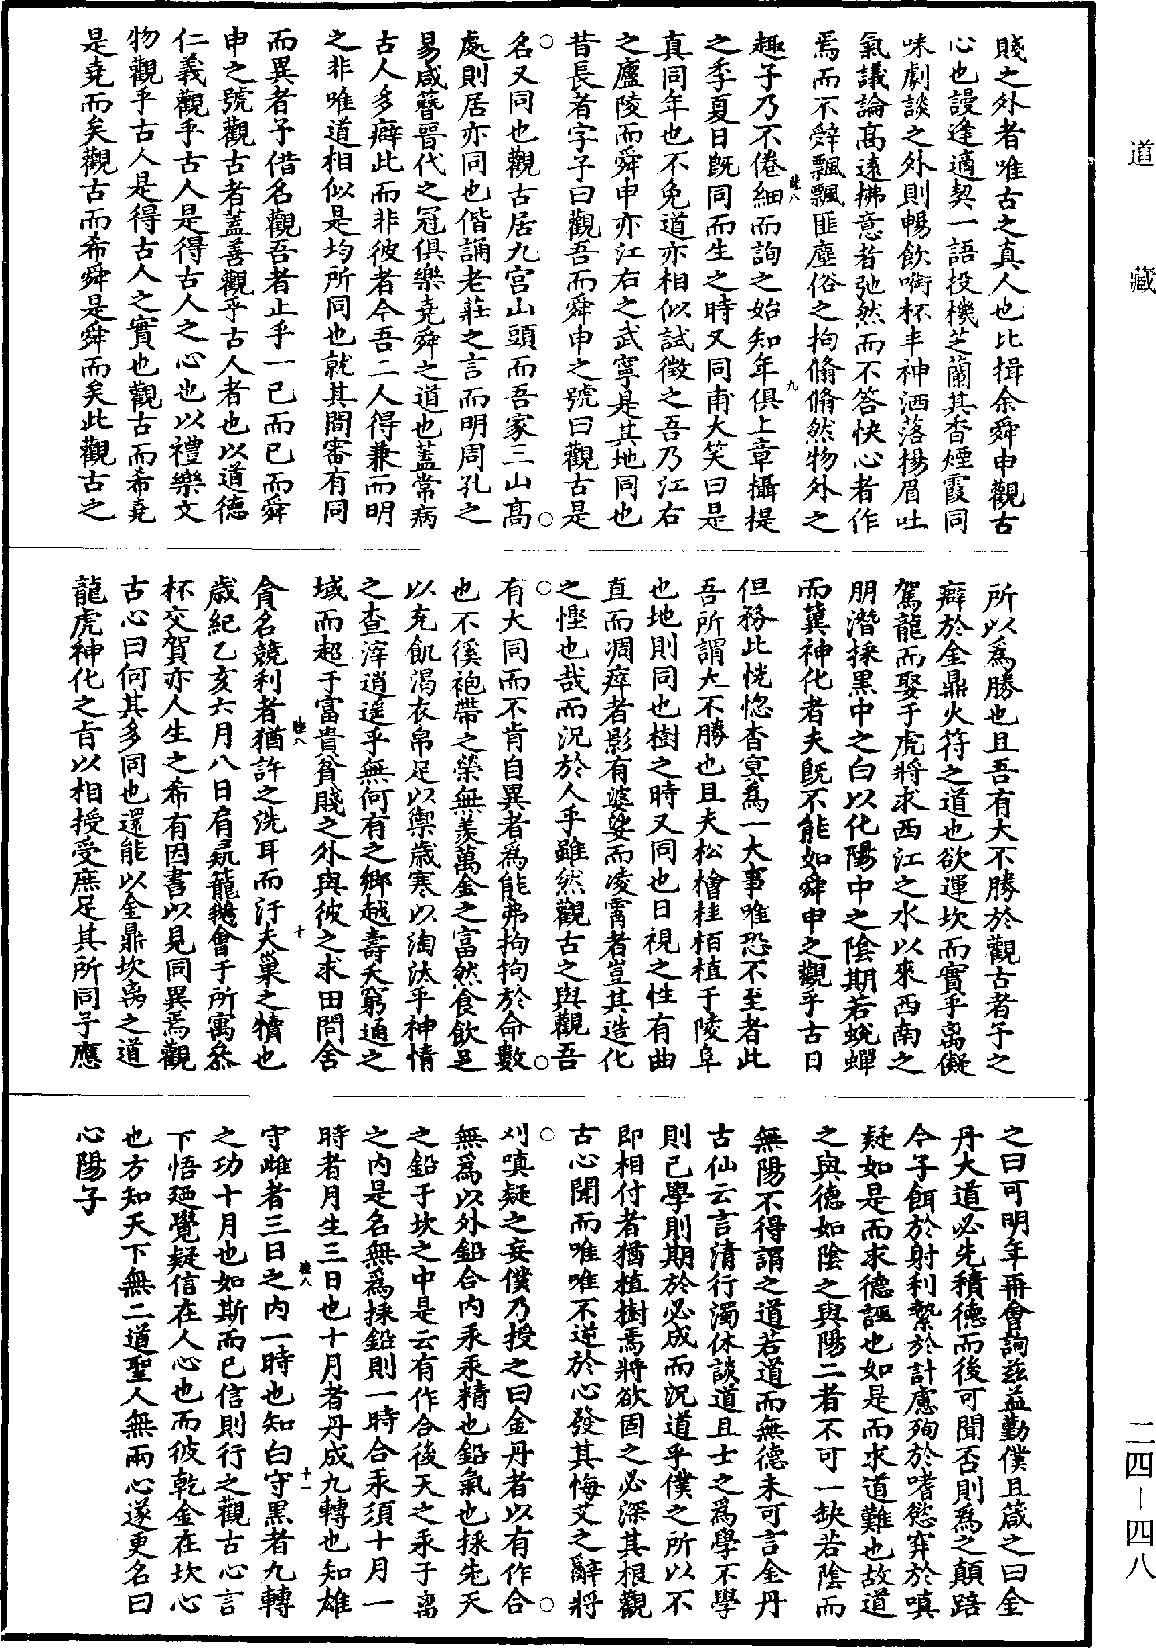 道藏
二四－四八
賤之外者唯古之真人也比揖余舜申觀古
心也謾逢適契一語投機芝蘭其香煙霞同
味劇談之外則暢飲啣杯丰神洒落揚眉吐
氣議論高遠拂意者弛然而不答快心者作
焉而不辤飄飄匪塵俗之拘翛翛然物外之
趣子乃不倦細而詢之始知年俱上章攝提
之季夏日既同而生之時又同甫大笑曰是
真同年也不免道亦相似試徵之吾乃江右
之廬陵而舜申亦江右之武寧是其地同也
昔長者字子曰觀吾而舜申之號曰觀古是
名又同也觀古居九宮山頭而吾家三山髙
處則居亦同也偕誦老莊之言而明周孔之
易咸簪晉代之冠俱樂堯舜之道也蓋常病
古人多癖此而非彼者今吾二人得兼而明
之非唯道相似是均所同也就其間審有同
而異者子借名觀吾者止乎一己而已而舜
申之號觀古者蓋善觀乎古人者也以道德
仁義觀乎古人是得古人之心也以禮樂文
物觀乎古人是得古人之實也觀古而希堯
是堯而矣觀古而希舜是舜而矣此觀古之
所以爲勝也且吾有大不勝於觀古者予之
癖於金鼎火符之道也欲運坎而實乎离儗
駕龍而娶于虎將求西江之水以來西南之
朋潛採黒中之白以化陽中之陰期若蛻蟬
而冀神化者夫既不能如舜申之觀乎古日
但務此恍惚杳冥為一大事唯恐不至者此
吾所謂大不勝也且夫松檜桂栢植于陵阜
也地則同也樹之時又同也日視之性有曲
直而凋瘁者影有婆娑而凌霄者豈其造化
之慳也哉而況於人乎雖然觀古之與觀吾
有大同而不肯自異者為能弗拘拘於命數
也不徯袍帶之榮無羨萬金之富然食飲足
以充飢渴衣帛足以禦歲寒以淘汰乎神情
之查滓逍遥乎無何有之鄉越壽夭窮通之
域而超于富貴貧賤之外與彼之求田問舍
貪名競利者猶許之洗耳而汙夫巢之犢也
歲紀乙亥六月八日肩鵞籠會于所寓叅
杯交賀亦人生之希有因書以見同異焉觀
古心曰何其多同也還能以金鼎坎离之道
龍虎神化之旨以相授受庶足其所同予應
之曰可明年再會詢茲益勤僕且箴之曰金
丹大道必先積德而後可聞否則為之顛踣
今子餌於射利縶於計慮殉於嗜慾穽於嗔
疑如是而求德誣也如是而求道難也故道
之與德如陰之與陽二者不可一缺若陰而
無陽不得謂之道若道而無德未可言金丹
古仙云言清行濁休談道且士之為學不學
則已學則期於必成而況道乎僕之所以不
即相付者猶植樹焉將欲固之必深其根觀
古心開而唯唯不逆於心發其悔艾之辭將
刈嗔疑之妄僕乃授之曰金丹者以有作合
無爲以外鉛合內汞汞精也鉛氣也採先天
之鉛于坎之中是云有作合後天之汞于离
之內是名無為採鉛則一時合汞須十月一
時者月生三日也十月者丹成九轉也知雄
守雌者三日之內一時也知白守黑者九轉
之功十月也如斯而已信則行之觀古心言
下悟廼覺疑信在人心也而彼乾金在坎心
也方知天下無二道聖人無兩心遂更名曰
心陽子